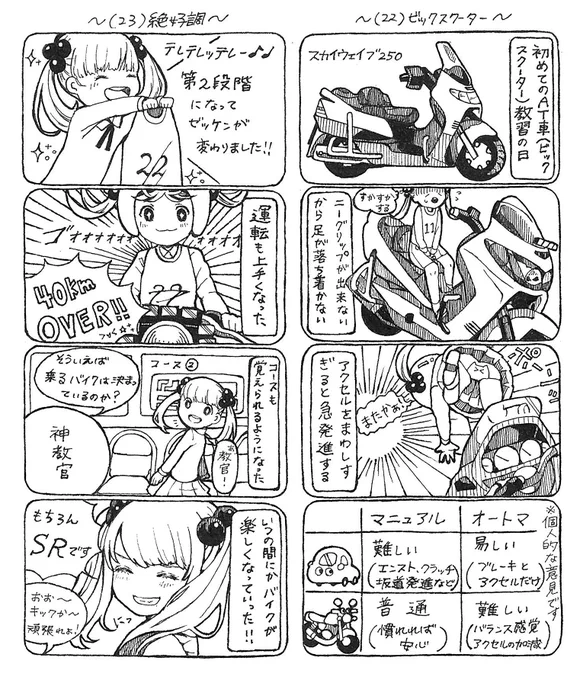 ～(22)ビックスクーター～
初めてのAT車(ビック
スクーター)教習の日
スカイウェイブ250
ニーグリップが出来ない
から足が落ち着かない
すかすか
する
11
アクセルをまわしす
ぎると急発進する
またやあぁ
ポーン
※個人的な意見です
マニュアル
オートマ
難しい
(エンスト、クラッチ
坂道発進など)
易しい
(ブレーキと
アクセルだけ)
普通
(慣れれば
安心)
難しい
(バランス感覚
アクセルの加減)
～(23)絶好調～
テレテレッテレー♪♪
第2段階
になって
ゼッケンが
変わりました!!
22
運転も上手くなった
ゴオオオオオ
40km
OVER!!
22
コースも
覚えられるようになった
コース②
そういえば
乗るバイクは決まっ
ているのか?
神教官
あ
教官!
いつの間にかバイクが
楽しくなっていった!!
もちろん
SRです
にっ
おお～
キックか～
頑張れよ!